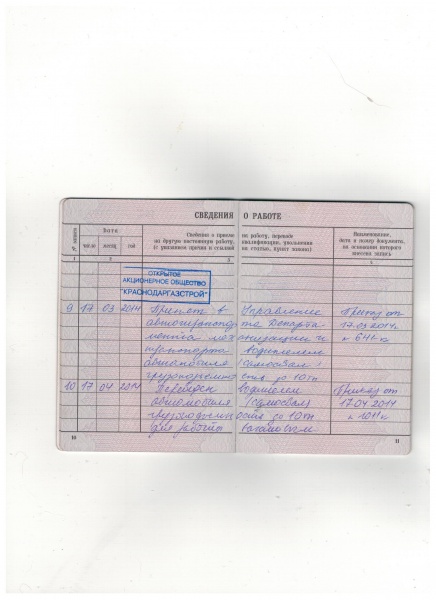 СВЕДЕНИЯ О РАБОТЕ
№ записи
Дата
число месяц год
Сведения о приеме на работу, переводе
на другую постоянную работу, квалификации, увольнении
(с указанием причин и ссылкой на статью, пункт закона)
Наименование,
дата и номер документа,
на основании которого
внесена запись
1 2 3 4
ОТКРЫТОЕ
АКЦИОНЕРНОЕ ОБЩЕСТВО
"КРАСНОДАРГАЗСТРОЙ"
9 17 03 2014 Принят в Управление Приказ от
автотранспорта Департа- 17.03.2014г.
мента механизации и № 641-к
транспорта водителем
автомобиля (самосвал)
грузоподъемностью до 10тн
10 17 04 2014 водителем Приказ от
автомобиля (самосвал) 17.04.2014
грузоподъемностью до 10тн
для работы вахтовым
10
11